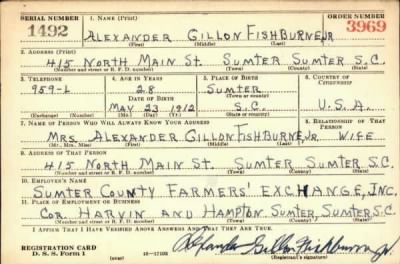 SERIAL NUMBER 1. NAME (Print) ORDER NUMBER
1492 ALEXANDER GILLON FISHBURNE, JR 3969
(First) (Middle) (Last)
2. ADDRESS (Print)
415 NORTH MAIN ST. SUMTER SUMTER S.C.
(Number and street or R. F. D. number) (Town) (County) (State)
3. TELEPHONE 4. AGE IN YEARS 5. PLACE OF BIRTH 6. COUNTRY OF CITIZENSHIP
959-L 28 SUMTER
DATE OF BIRTH (Town or county)
MAY 23 1912 S.C. U.S.A.
(Exchange) (Number) (Mo.) (Day) (Yr.) (State or country)
7. NAME OF PERSON WHO WILL ALWAYS KNOW YOUR ADDRESS 8. RELATIONSHIP OF THAT PERSON
MRS. ALEXANDER GILLON FISHBURNE, JR. WIFE
(Mr., Mrs., Miss) (First) (Middle) (Last)
9. ADDRESS OF THAT PERSON
415 NORTH MAIN ST. SUMTER SUMTER S.C.
(Number and street or R. F. D. number) (Town) (County) (State)
10. EMPLOYER'S NAME
SUMTER COUNTY FARMERS' EXCHANGE, INC.
11. PLACE OF EMPLOYMENT OR BUSINESS
COR. HARVIN AND HAMPTON SUMTER, SUMTER, S.C.
(Number and street or R. F. D. number) (Town) (County) (State)
I AFFIRM THAT I HAVE VERIFIED ABOVE ANSWERS AND THAT THEY ARE TRUE.
Alexander Gillon Fishburne Jr.
REGISTRATION CARD
D. S. S. Form 1 (Registrant's signature)